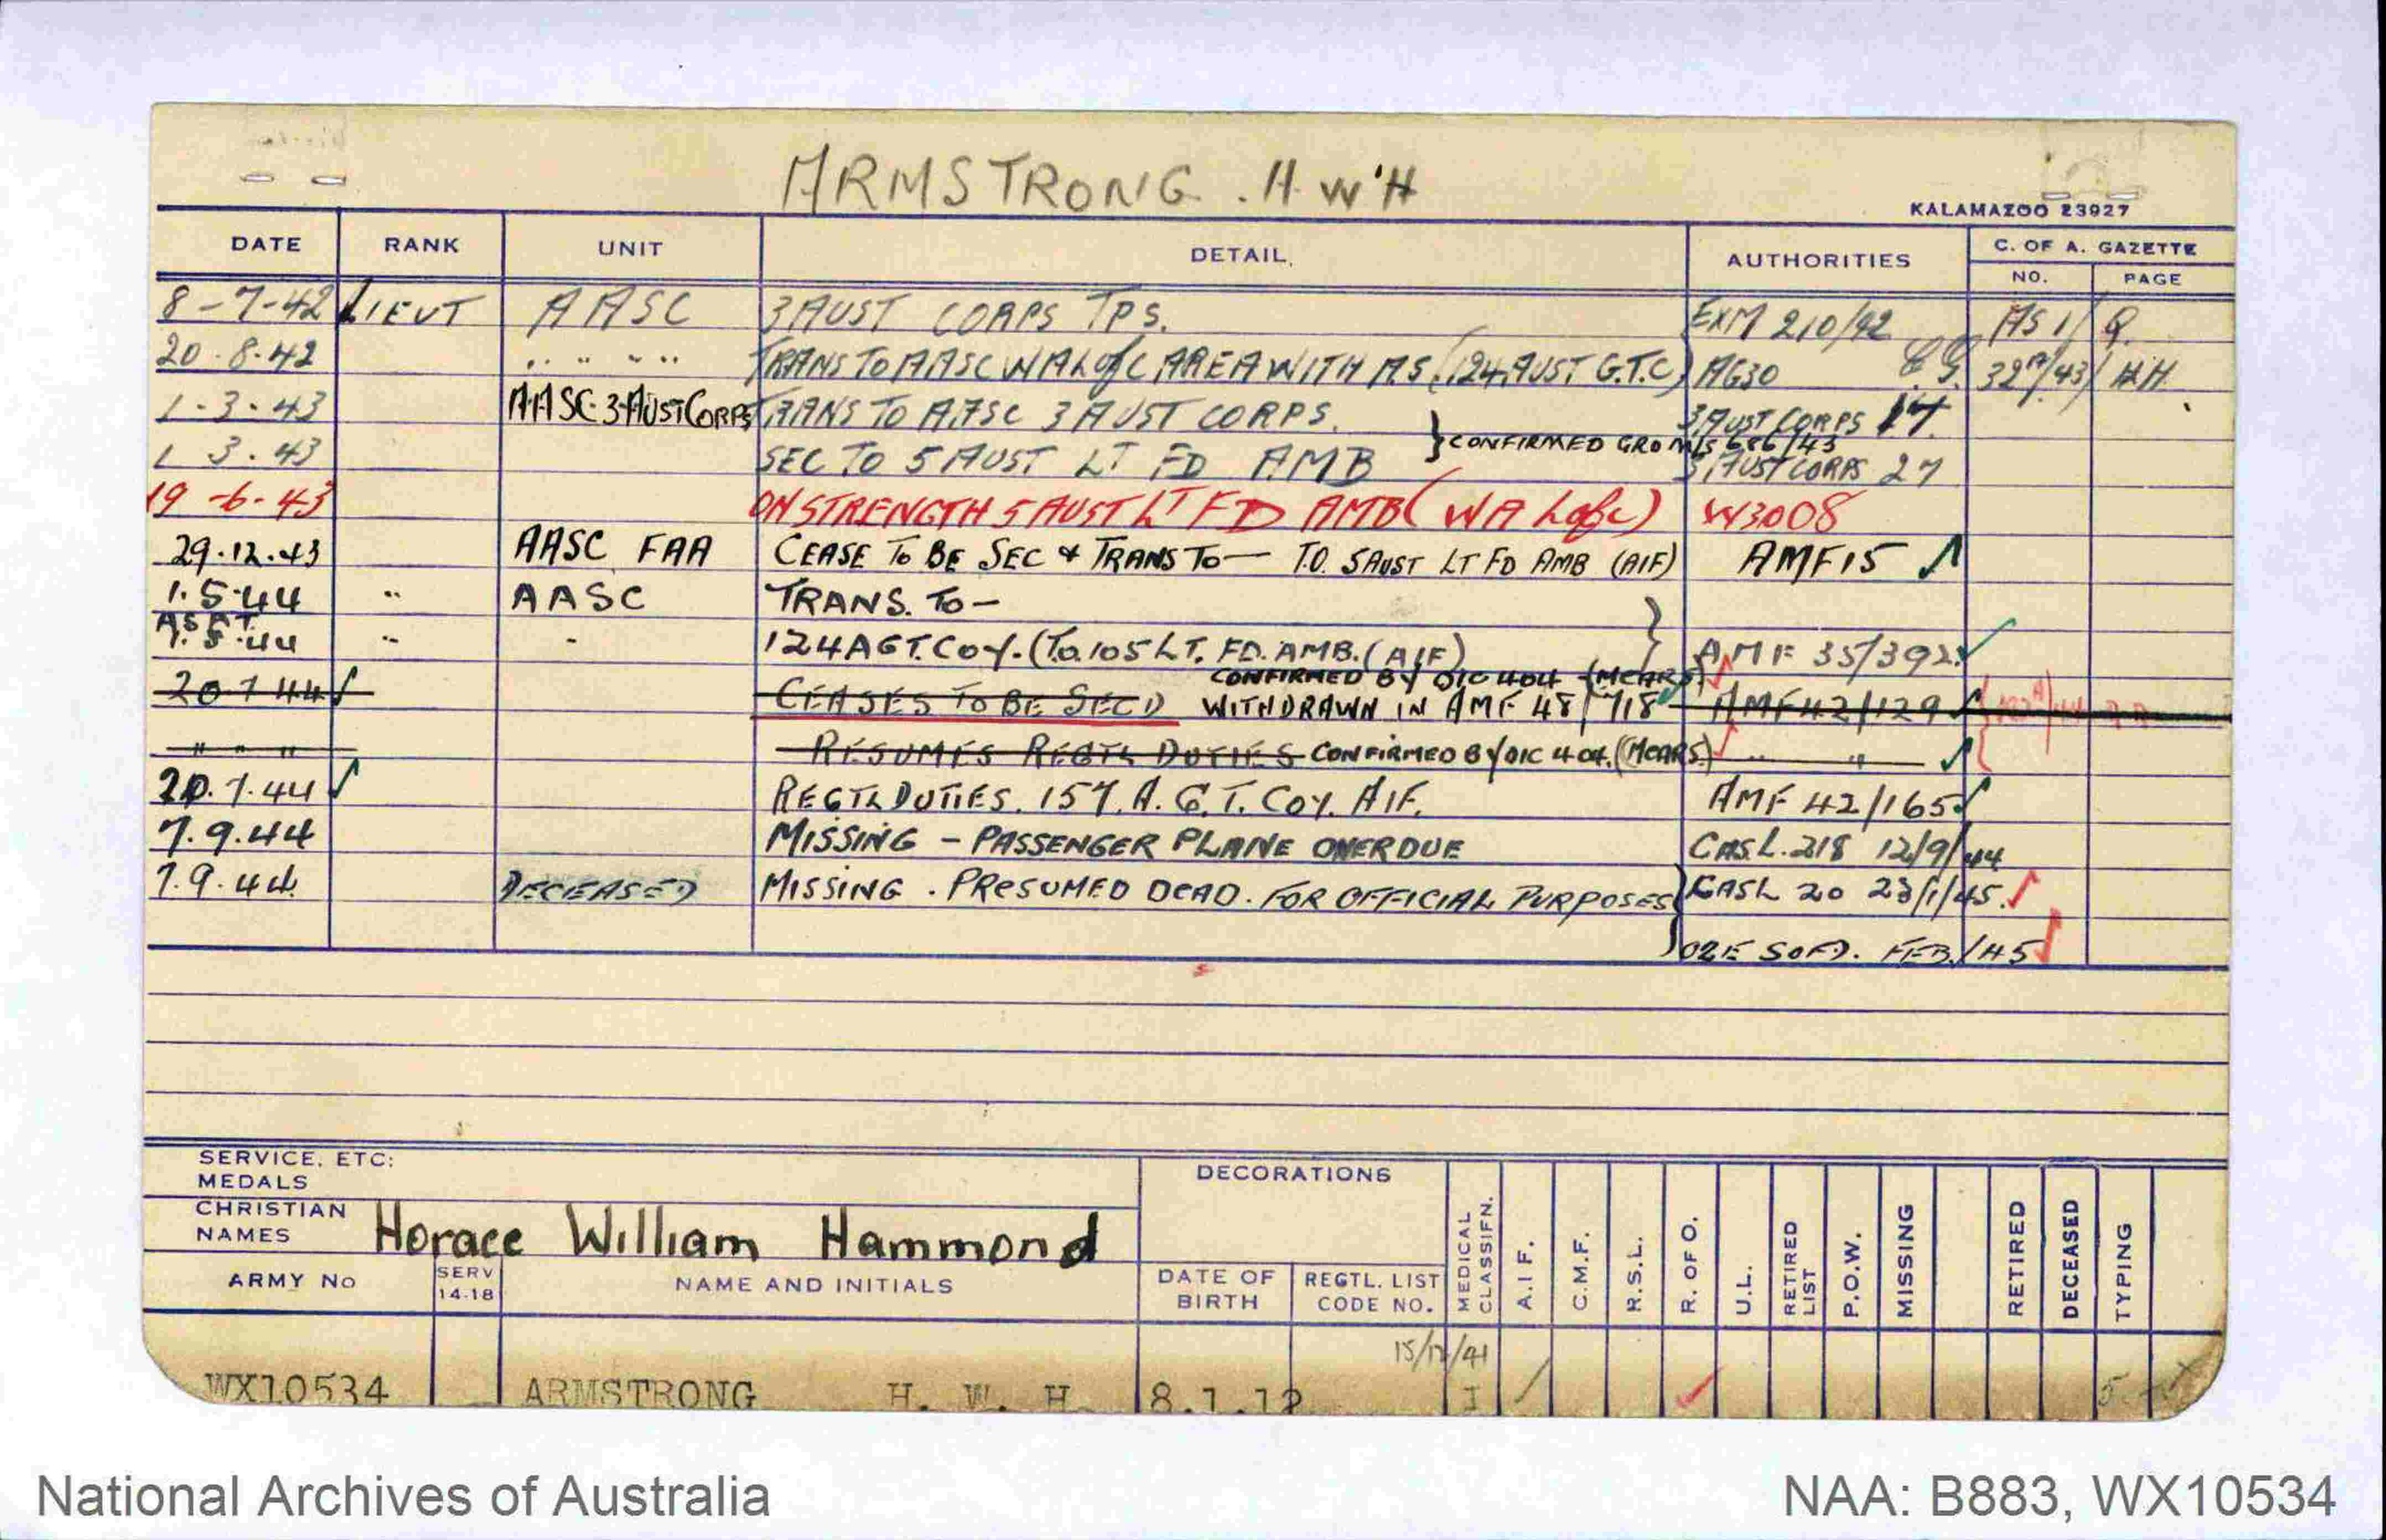 ARMSTRONG. H W H
KALAMAZOO 23927
DATE RANK UNIT DETAIL. AUTHORITIES C. OF A. GAZETTE
NO. PAGE
8-7-42 LIEUT AASC 3 AUST CORPS TPS. EXM 210/42 AS 1 Q.
20.8.42 " " " " TRANS TO AASC WA L of C AREA WITH A.S. (124 AUST G.T.C) AG30 32A/43 HH
1.3.43 AASC 3 AUST CORPS TRANS TO AASC 3 AUST CORPS. 3 AUST CORPS 17
} CONFIRMED GRO M/S 686/43
1 3.43 SEC TO 5 AUST LT FD AMB 3 AUST CORPS 27
19-6-43 ON STRENGTH 5 AUST LT FD AMB (WA L of C) W3008
29.12.43 AASC FAA CEASE TO BE SEC & TRANS TO — T.O. 5 AUST LT FD AMB (AIF) AMF15
1.5.44 " AASC TRANS. TO -
AS AT
1.5.44 " - 124 AGT. COY. (T.O. 105 LT. FD. AMB. (AIF) AMF 35/392
CONFIRMED BY OIC 4 OH (MCARS)
20 7 44 CEASES TO BE SEC'D WITHDRAWN IN AMF 48/718 AMF 42/129
" " " RESUMES REGTL DUTIES CONFIRMED BY OIC 4 OH. (MCARS.) " "
20.7.44 REGTL DUTIES. 157. A.G.T. COY. AIF. AMF 42/165
7.9.44 MISSING - PASSENGER PLANE OVERDUE CAS.L. 218 12/9/44
7.9.44. DECEASED MISSING. PRESUMED DEAD. FOR OFFICIAL PURPOSES CASL 20 23/1/45.
02E SOFD. FEB/45
SERVICE, ETC:
MEDALS
DECORATIONS
CHRISTIAN
NAMES Horace William Hammond
ARMY No SERV 14-18 NAME AND INITIALS DATE OF BIRTH REGTL. LIST CODE NO. MEDICAL CLASSIFN. A.I.F. C.M.F. R.S.L. R. OF O. U.L. RETIRED LIST P.O.W. MISSING RETIRED DECEASED TYPING
15/12/41
WX10534 ARMSTRONG H. W. H. 8.1.12 I
National Archives of Australia NAA: B883, WX10534